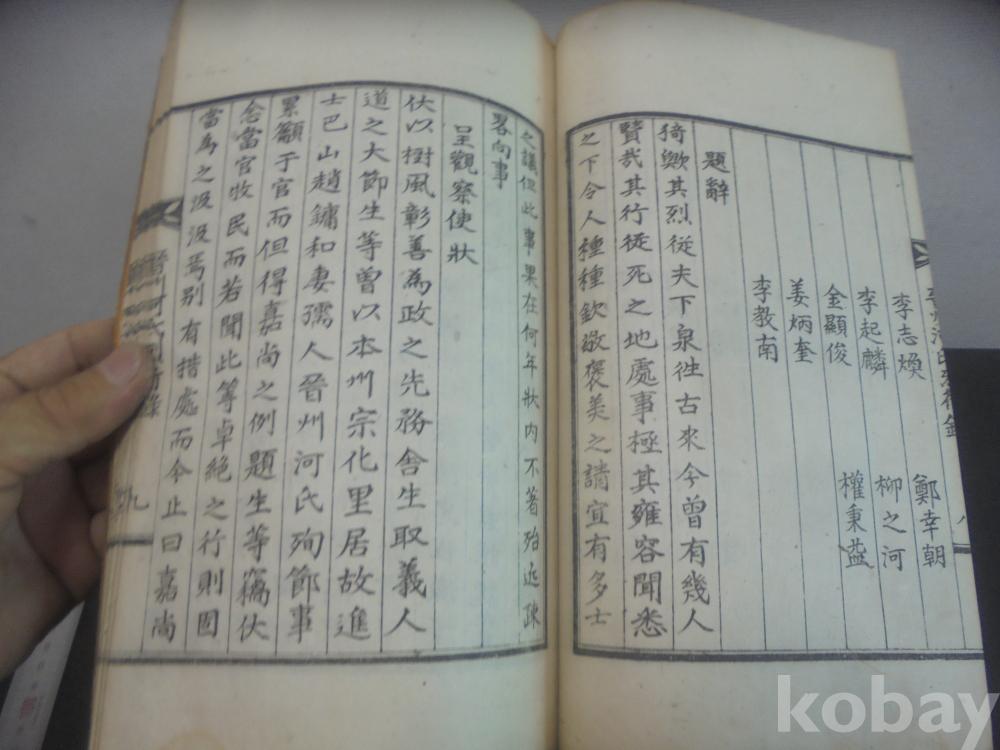 李志煥 鄭幸朝
李起麟 柳之河
金顯俊 權秉蓋
姜炳奎
李敎南
題辭
猗歟其烈從夫下泉徃古來今曾有幾人
賢㢤其行從死之地處事極其雍容聞悉
之下令人種種欽歎褒美之請宜有多士
之議但此事果在何年狀內不著殆近疎
畧向事
呈觀察使狀
伏以樹風彰善爲政之先務舍生取義人
道之大節生等曾以本州宗化里居故進
士巴山趙鏞和妻孺人晉州河氏殉節事
累籲于官而但得嘉尚之例題生等竊伏
念當官牧民而若聞此等卓絶之行則固
當爲之汲汲焉別有措處而今止曰嘉尚
九
kobay